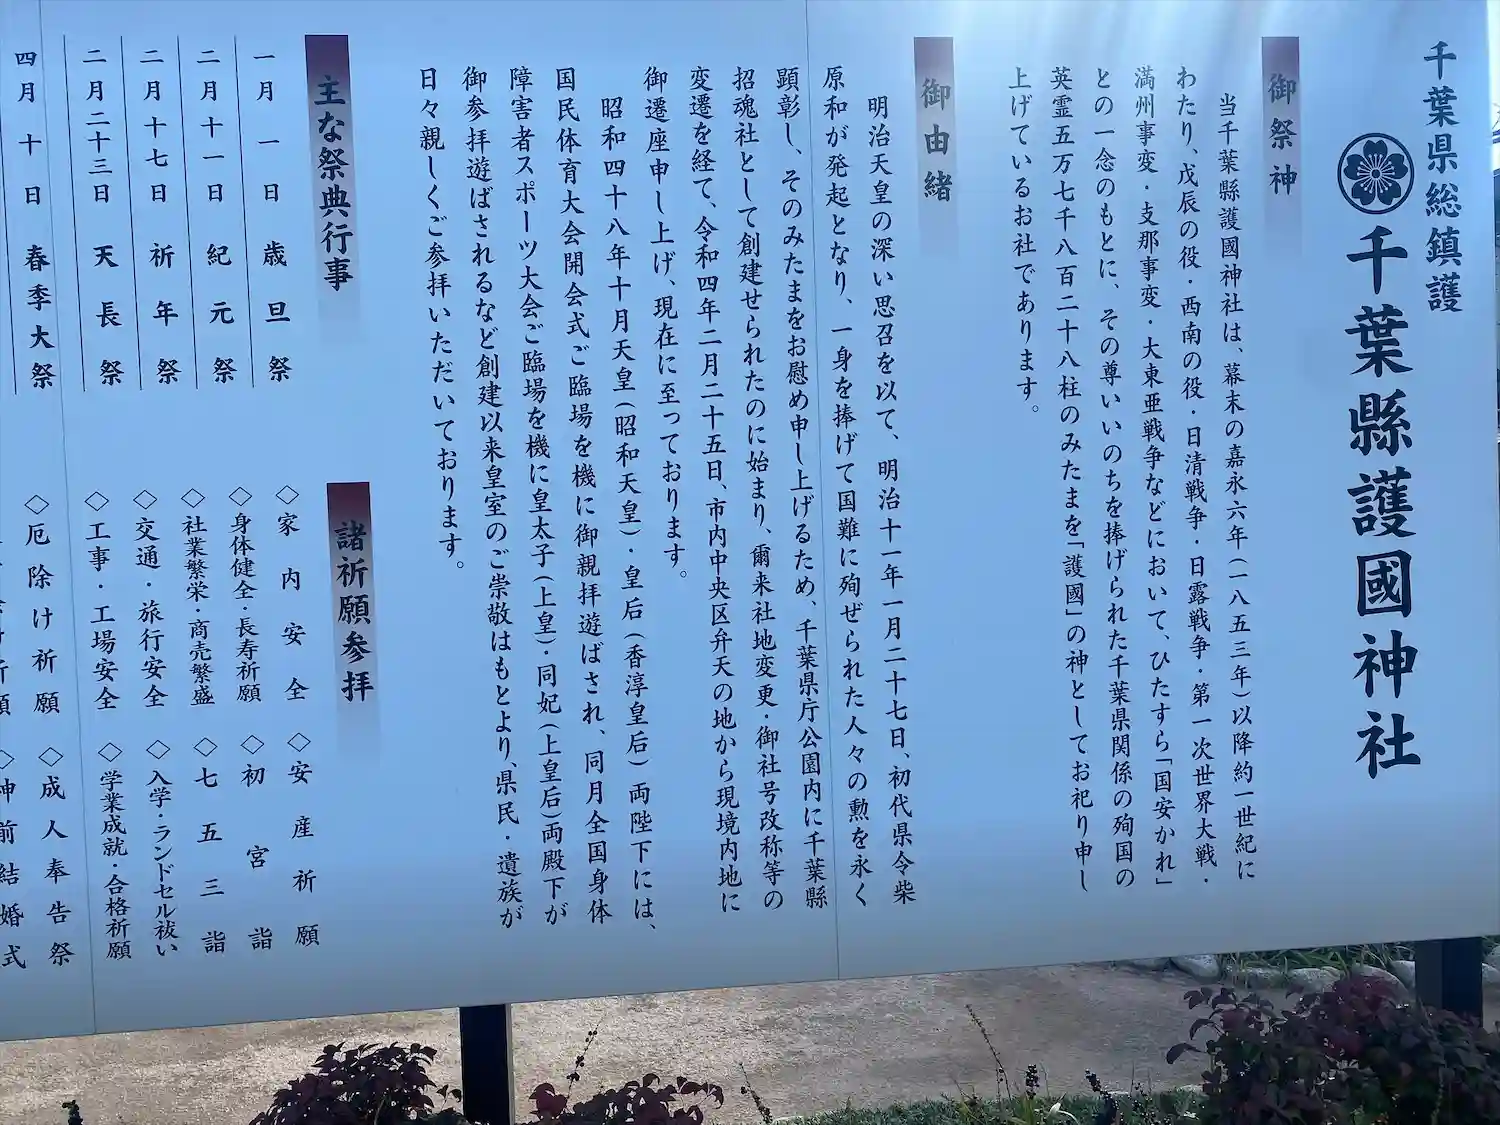 千葉県総鎮護
千葉縣護國神社
御祭神
当千葉縣護國神社は、幕末の嘉永六年(一八五三年)以降約一世紀に
わたり、戊辰の役・西南の役・日清戦争・日露戦争・第一次世界大戦・
満州事変・支那事変・大東亜戦争などにおいて、ひたすら「国安かれ」
との一念のもとに、その尊いいのちを捧げられた千葉県関係の殉国の
英霊五万七千八百二十八柱のみたまを「護國」の神としてお祀り申し
上げているお社であります。
御由緒
明治天皇の深い思召を以て、明治十一年一月二十七日、初代県令柴
原和が発起となり、一身を捧げて国難に殉ぜられた人々の勲を永く
顕彰し、そのみたまをお慰め申し上げるため、千葉県庁公園内に千葉縣
招魂社として創建せられたのに始まり、爾来社地変更・御社号改称等の
変遷を経て、令和四年二月二十五日、市内中央区弁天の地から現境内地に
御遷座申し上げ、現在に至っております。
昭和四十八年十月天皇(昭和天皇)・皇后(香淳皇后)両陛下には、
国民体育大会開会式ご臨場を機に御親拝遊ばされ、同月全国身体
障害者スポーツ大会ご臨場を機に皇太子(上皇)・同妃(上皇后)両殿下が
御参拝遊ばされるなど創建以来皇室のご崇敬はもとより、県民・遺族が
日々親しくご参拝いただいております。
主な祭典行事
一月一日 歳旦祭
二月十一日 紀元祭
二月十七日 祈年祭
二月二十三日 天長祭
四月十日 春季大祭
諸祈願参拝
◇家内安全 ◇安産祈願
◇身体健全・長寿祈願 ◇初宮詣
◇社業繁栄・商売繁盛 ◇七五三詣
◇交通・旅行安全 ◇入学・ランドセル祓い
◇工事・工場安全 ◇学業成就・合格祈願
◇厄除け祈願 ◇成人奉告祭
◇神前結婚式